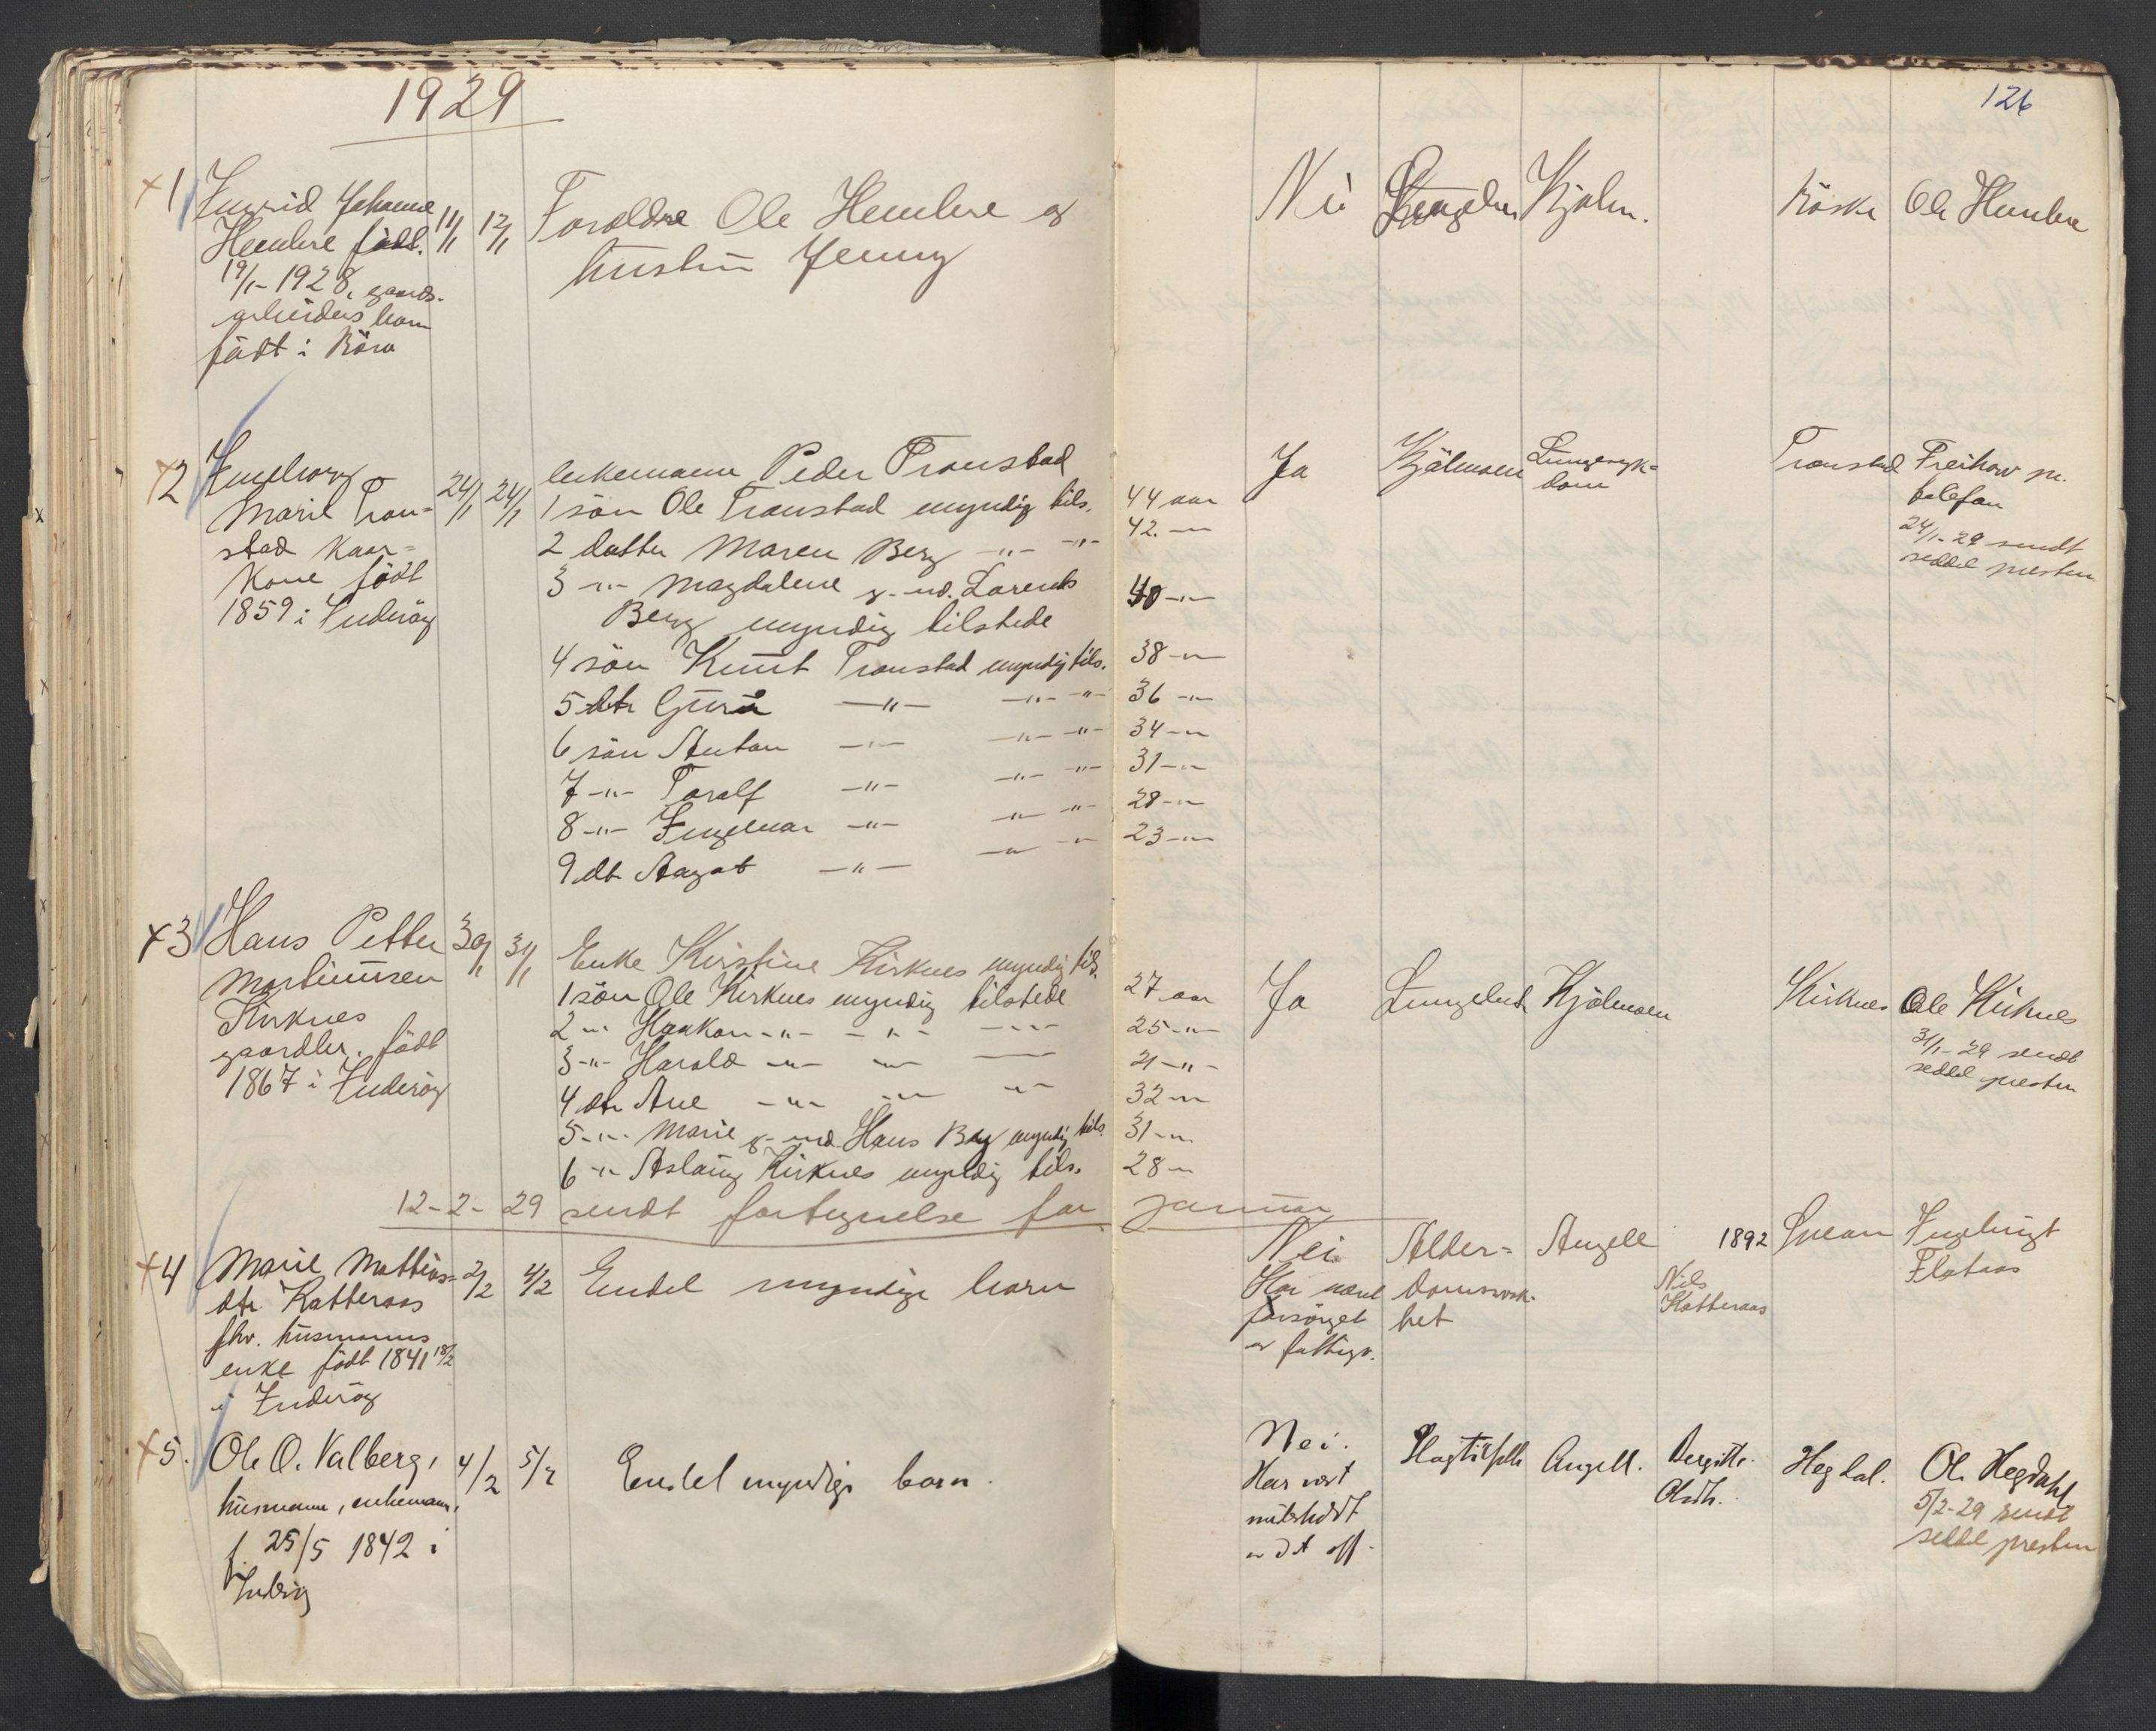 1929
126
+1 Ingrid Johanne 11/1 12/1 Foraldre Ole Hembre og Nei Kjølm. Røske Ole Hembre
Hembre født. hustru Jenny
19/1-1928, gaards-
arbeiders barn
født i Røra
+2 Ingeborg 24/1 24/1 enkemann Peder Tronstad Ja Kjølmoen Lungesyk= Tronstad Freihow pr.
Marie Tron= 1 søn Ole Tronstad myndig tils. 44 aar dom telefon
stad Kaar= 2 datter Maren Berg -"- -"- 42. -"- 24/1-29 sendt
kone født 3 -"- Magdalene g. m. Lorents 40 -"- seddel presten
1859 i Inderøy Berg myndig tilstede
4 søn Knut Tronstad myndig tils. 38 -"-
5 dtr Guru -"- -"- -"- 36 -"-
6 søn Anton -"- -"- -"- 34 -"-
7 -"- Toralf -"- -"- -"- 31 -"-
8 -"- Ingemar -"- -"- -"- 28 -"-
9 dt Aagot -"- -"- -"- 23 -"-
+3 Hans Petter 30/1 31/1 Enke Kirstine Kirknes myndig tils.
Martinusen 1 søn Ole Kirknes myndig tilstede 27 aar Ja Lungebet. Kjølmoen Kirknes Ole Kirknes
Kirknes 2 -"- Haakon -"- -"- -"- 25 -"- 31/1-29 sendt
gaardbr. født 3 -"- Harald -"- -"- -"- 21 -"- seddel presten
1867 i Inderøy 4 dtr Ane -"- -"- -"- 32 -"-
5 -"- Marie g. m. Hans Berg myndig tils. 31 -"-
6 -"- Aslaug Kirknes myndig tils. 28 -"-
12-2-29 sendt fortegnelse for januar
+4 Marie Mathias= 2/2 4/2 Endel myndige barn Nei Alder= Angell 1892 Ingebrigt
dtr. Katteraas Har vært domssvak- Nils Flotaas
fhv. husmanns forsørget het Katteraas
enke født 1841 18/2 av fattigv.
i Inderøy
+5. Ole O. Valberg, 4/2 5/2 Endel myndige barn. Nei. Slagtilfelle Angell. Bergitte Hegdal. Ole Hegdahl
husmann, enkemann, Har vært Olsdtr. 5/2-29 sendt
f. 25/5 1842 i understøtt seddel presten
Inderøy av det off.